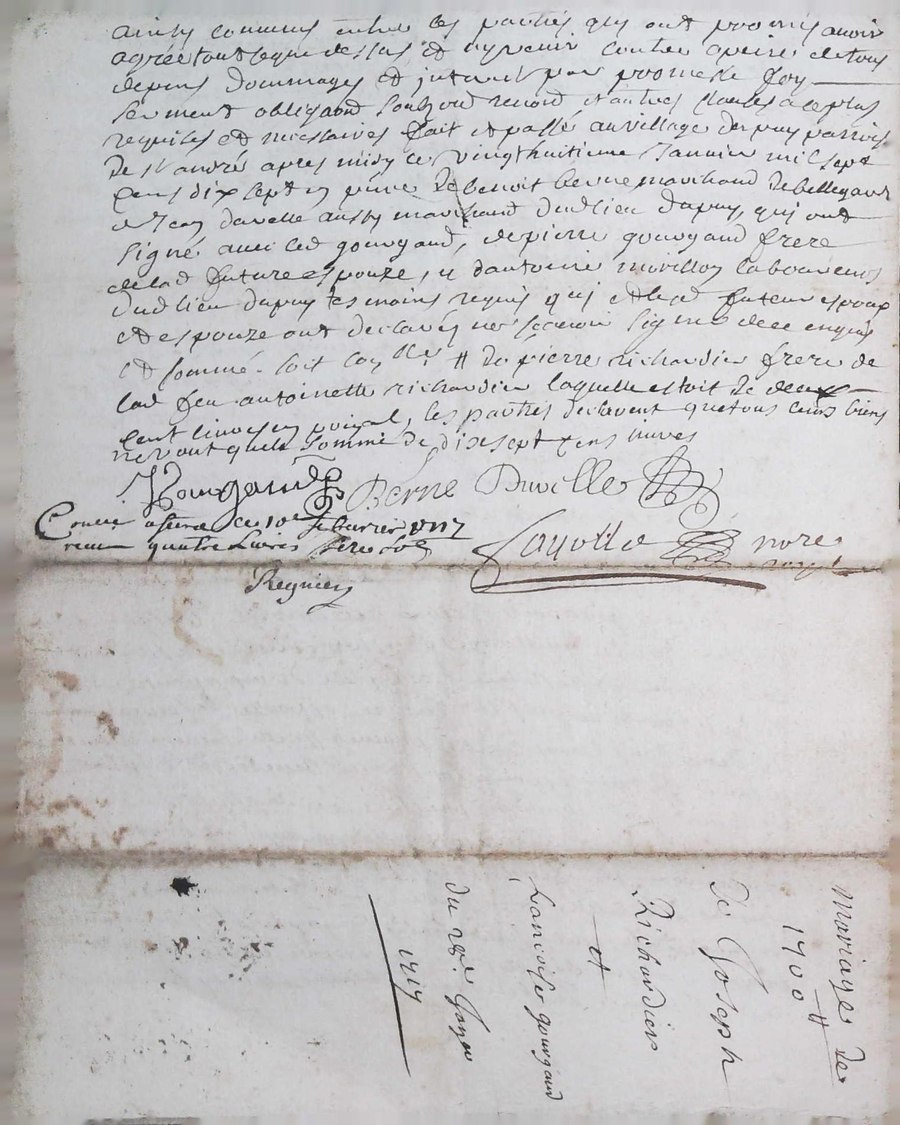 ainsy convenus entre les parties quy ont promis avoir
agrée tout ce que dessus et n'y venir contre a peine de tous
depens dommages et interest par promesse foy
serment obligaond soubzond renond et autres clauses a ce plus
requises et necessaires fait et passé au village du puy parroisse
de st andré apres midy ce vingt huitieme Janvier mil sept
cens dix sept en pnce de benoit berne marchand de bellegard
et Jean duvelle aussy marchand dudlieu du puy, qui ont
signé avec led gourgaud, de pierre gourgaud frere
de lad future espouze, et d'antoine laboureurs
dudlieu du puy tesmoins requis qui et led futeur espoux
et espouze ont declarés ne sçavoir signer de ce enquis
et sommé. soit # de pierre richardier frere de
lad feu antoinette richardier laquelle estoit de deux
cent livres en principal, les parties declarent que tous leurs biens
ne vont qu'a la somme de dixsept cens livres
Gourgaud Berne Duvelle
Conerollé a le 10e febvrier 1717
receu quatre livres seize sols
Regnier
Jayolle nore
royal
Mariage de
1700 #
De Joseph
Richardier
et
francoise gourgaud
du 28e Janer
1717